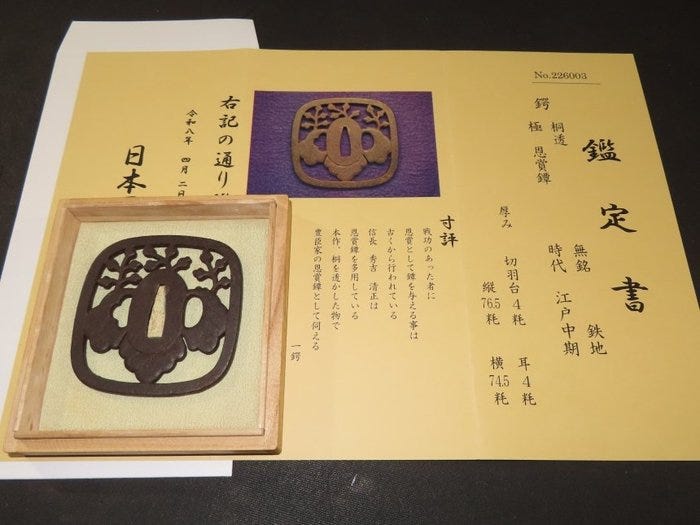 No.226003
鑑定書
無銘 鉄地
時代 江戸中期
鍔 桐透
極 恩賞鐔
厚み 切羽台4粍 耳4粍
縦76.5粍 横74.5粍
寸評
戦功のあった者に
恩賞として鐔を与える事は
古くから行われている
信長 秀吉 清正は
恩賞鐔を多用している
本作、桐を透かした物で
豊臣家の恩賞鐔として伺える
一鍔
右記の通り
令和八年 四月二日
日本